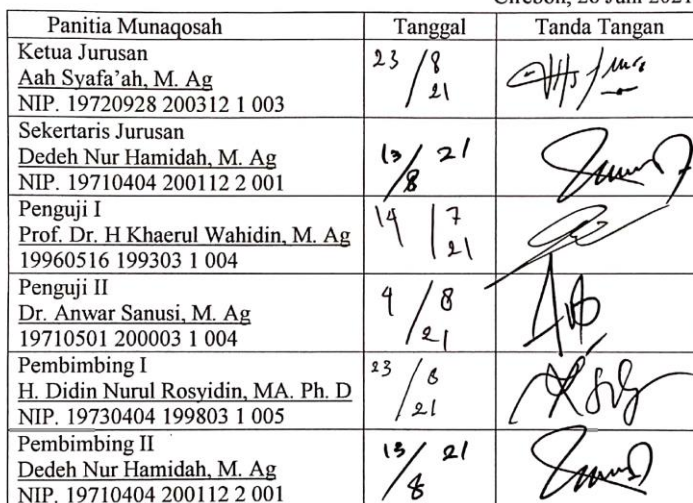 Panitia Munaqosah Tanggal Tanda Tangan
Ketua Jurusan
Aah Syafa'ah, M. Ag
NIP. 19720928 200312 1 003
23/8
21
Sekertaris Jurusan
Dedeh Nur Hamidah, M. Ag
NIP. 19710404 200112 2 001
13/8 21
Penguji I
Prof. Dr. H Khaerul Wahidin, M. Ag
19960516 199303 1 004
14 | 7
21
Penguji II
Dr. Anwar Sanusi, M. Ag
19710501 200003 1 004
4/8
21
Pembimbing I
H. Didin Nurul Rosyidin, MA. Ph. D
NIP. 19730404 199803 1 005
23/8
21
Pembimbing II
Dedeh Nur Hamidah, M. Ag
NIP. 19710404 200112 2 001
13/8 21